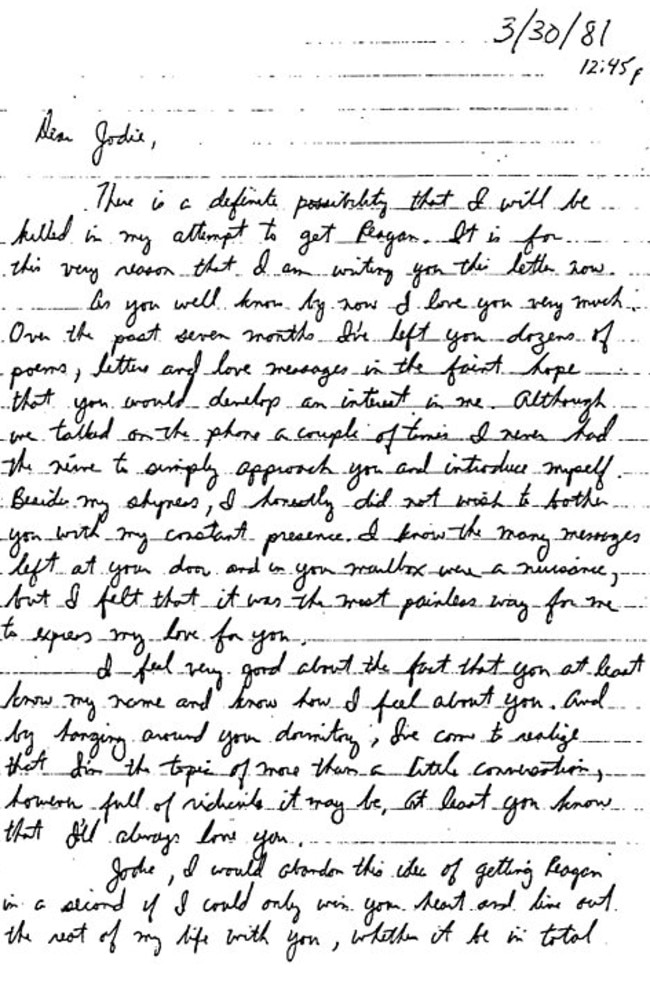 3/30/81
12:45 p
Dear Jodie,
There is a definite possibility that I will be
killed in my attempt to get Reagan. It is for
this very reason that I am writing you this letter now.
As you well know by now I love you very much.
Over the past seven months I've left you dozens of
poems, letters and love messages in the faint hope
that you would develop an interest in me. Although
we talked on the phone a couple of times I never had
the nerve to simply approach you and introduce myself.
Besides my shyness, I honestly did not wish to bother
you with my constant presence. I know the many messages
left at your door and in your mailbox were a nuisance,
but I felt that it was the most painless way for me
to express my love for you.
I feel very good about the fact that you at least
know my name and know how I feel about you. And
by hanging around your dormitory, I've come to realize
that I'm the topic of more than a little conversation,
however full of ridicule it may be. At least you know
that I'll always love you.
Jodie, I would abandon this idea of getting Reagan
in a second if I could only win your heart and live out
the rest of my life with you, whether it be in total